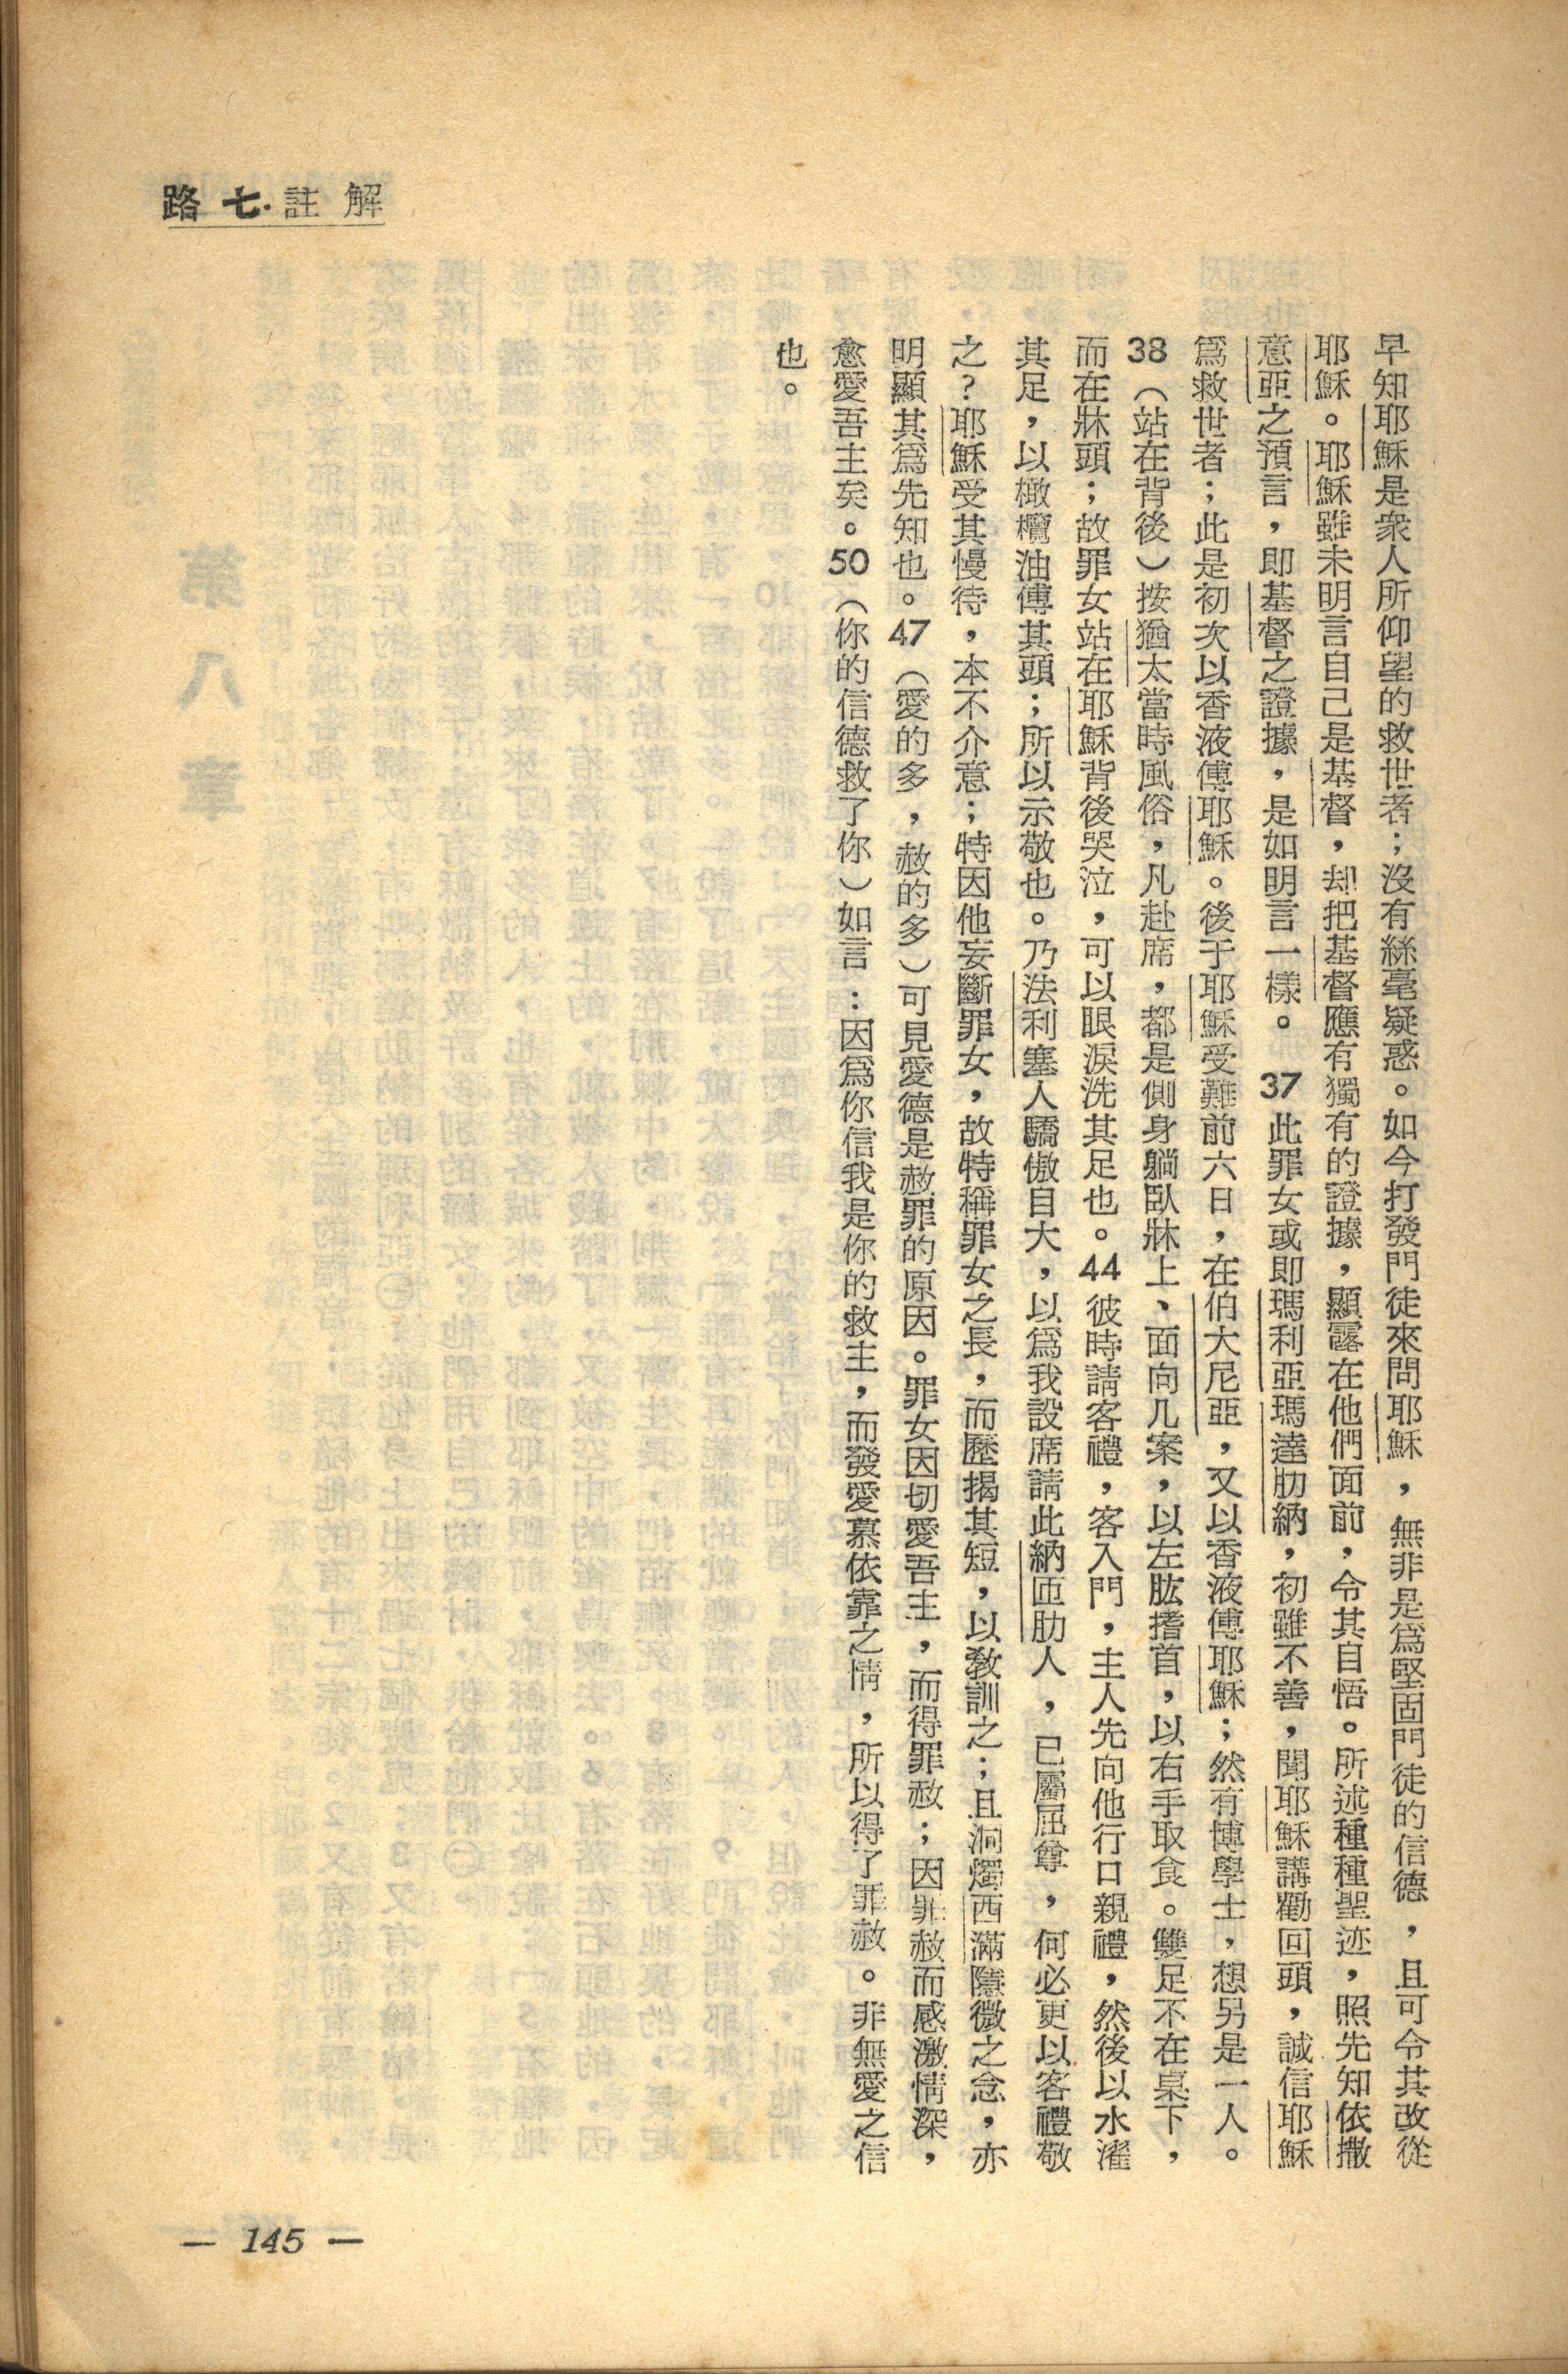 路七·註解
早知耶穌是衆人所仰望的救世者；沒有絲毫疑惑。如今打發門徒來問耶穌，無非是爲堅固門徒的信德，且可令其改從
耶穌。耶穌雖未明言自己是基督，却把基督應有獨有的證據，顯露在他們面前，令其自悟。所述種種聖迹，照先知依撒
意亞之預言，即基督之證據，是如明言一樣。37此罪女或即瑪利亞瑪達肋納，初雖不善，聞耶穌講勸回頭，誠信耶穌
爲救世者；此是初次以香液傅耶穌。後于耶穌受難前六日，在伯大尼亞，又以香液傅耶穌；然有博學士，想另是一人。
38（站在背後）按猶太當時風俗，凡赴席，都是側身躺臥牀上、面向几案，以左肱搘首，以右手取食。雙足不在桌下，
而在牀頭；故罪女站在耶穌背後哭泣，可以眼淚洗其足也。44彼時請客禮，客入門，主人先向他行口親禮，然後以水濯
其足，以橄欖油傅其頭；所以示敬也。乃法利塞人驕傲自大，以爲我設席請此納匝肋人，已屬屈尊，何必更以客禮敬
之？耶穌受其慢待，本不介意；特因他妄斷罪女，故特稱罪女之長，而歷揭其短，以敎訓之；且洞燭西滿隱微之念，亦
明顯其爲先知也。47（愛的多，赦的多）可見愛德是赦罪的原因。罪女因切愛吾主，而得罪赦；因罪赦而感激情深，
愈愛吾主矣。50（你的信德救了你）如言：因爲你信我是你的救主，而發愛慕依靠之情，所以得了罪赦。非無愛之信
也。
— 145 —